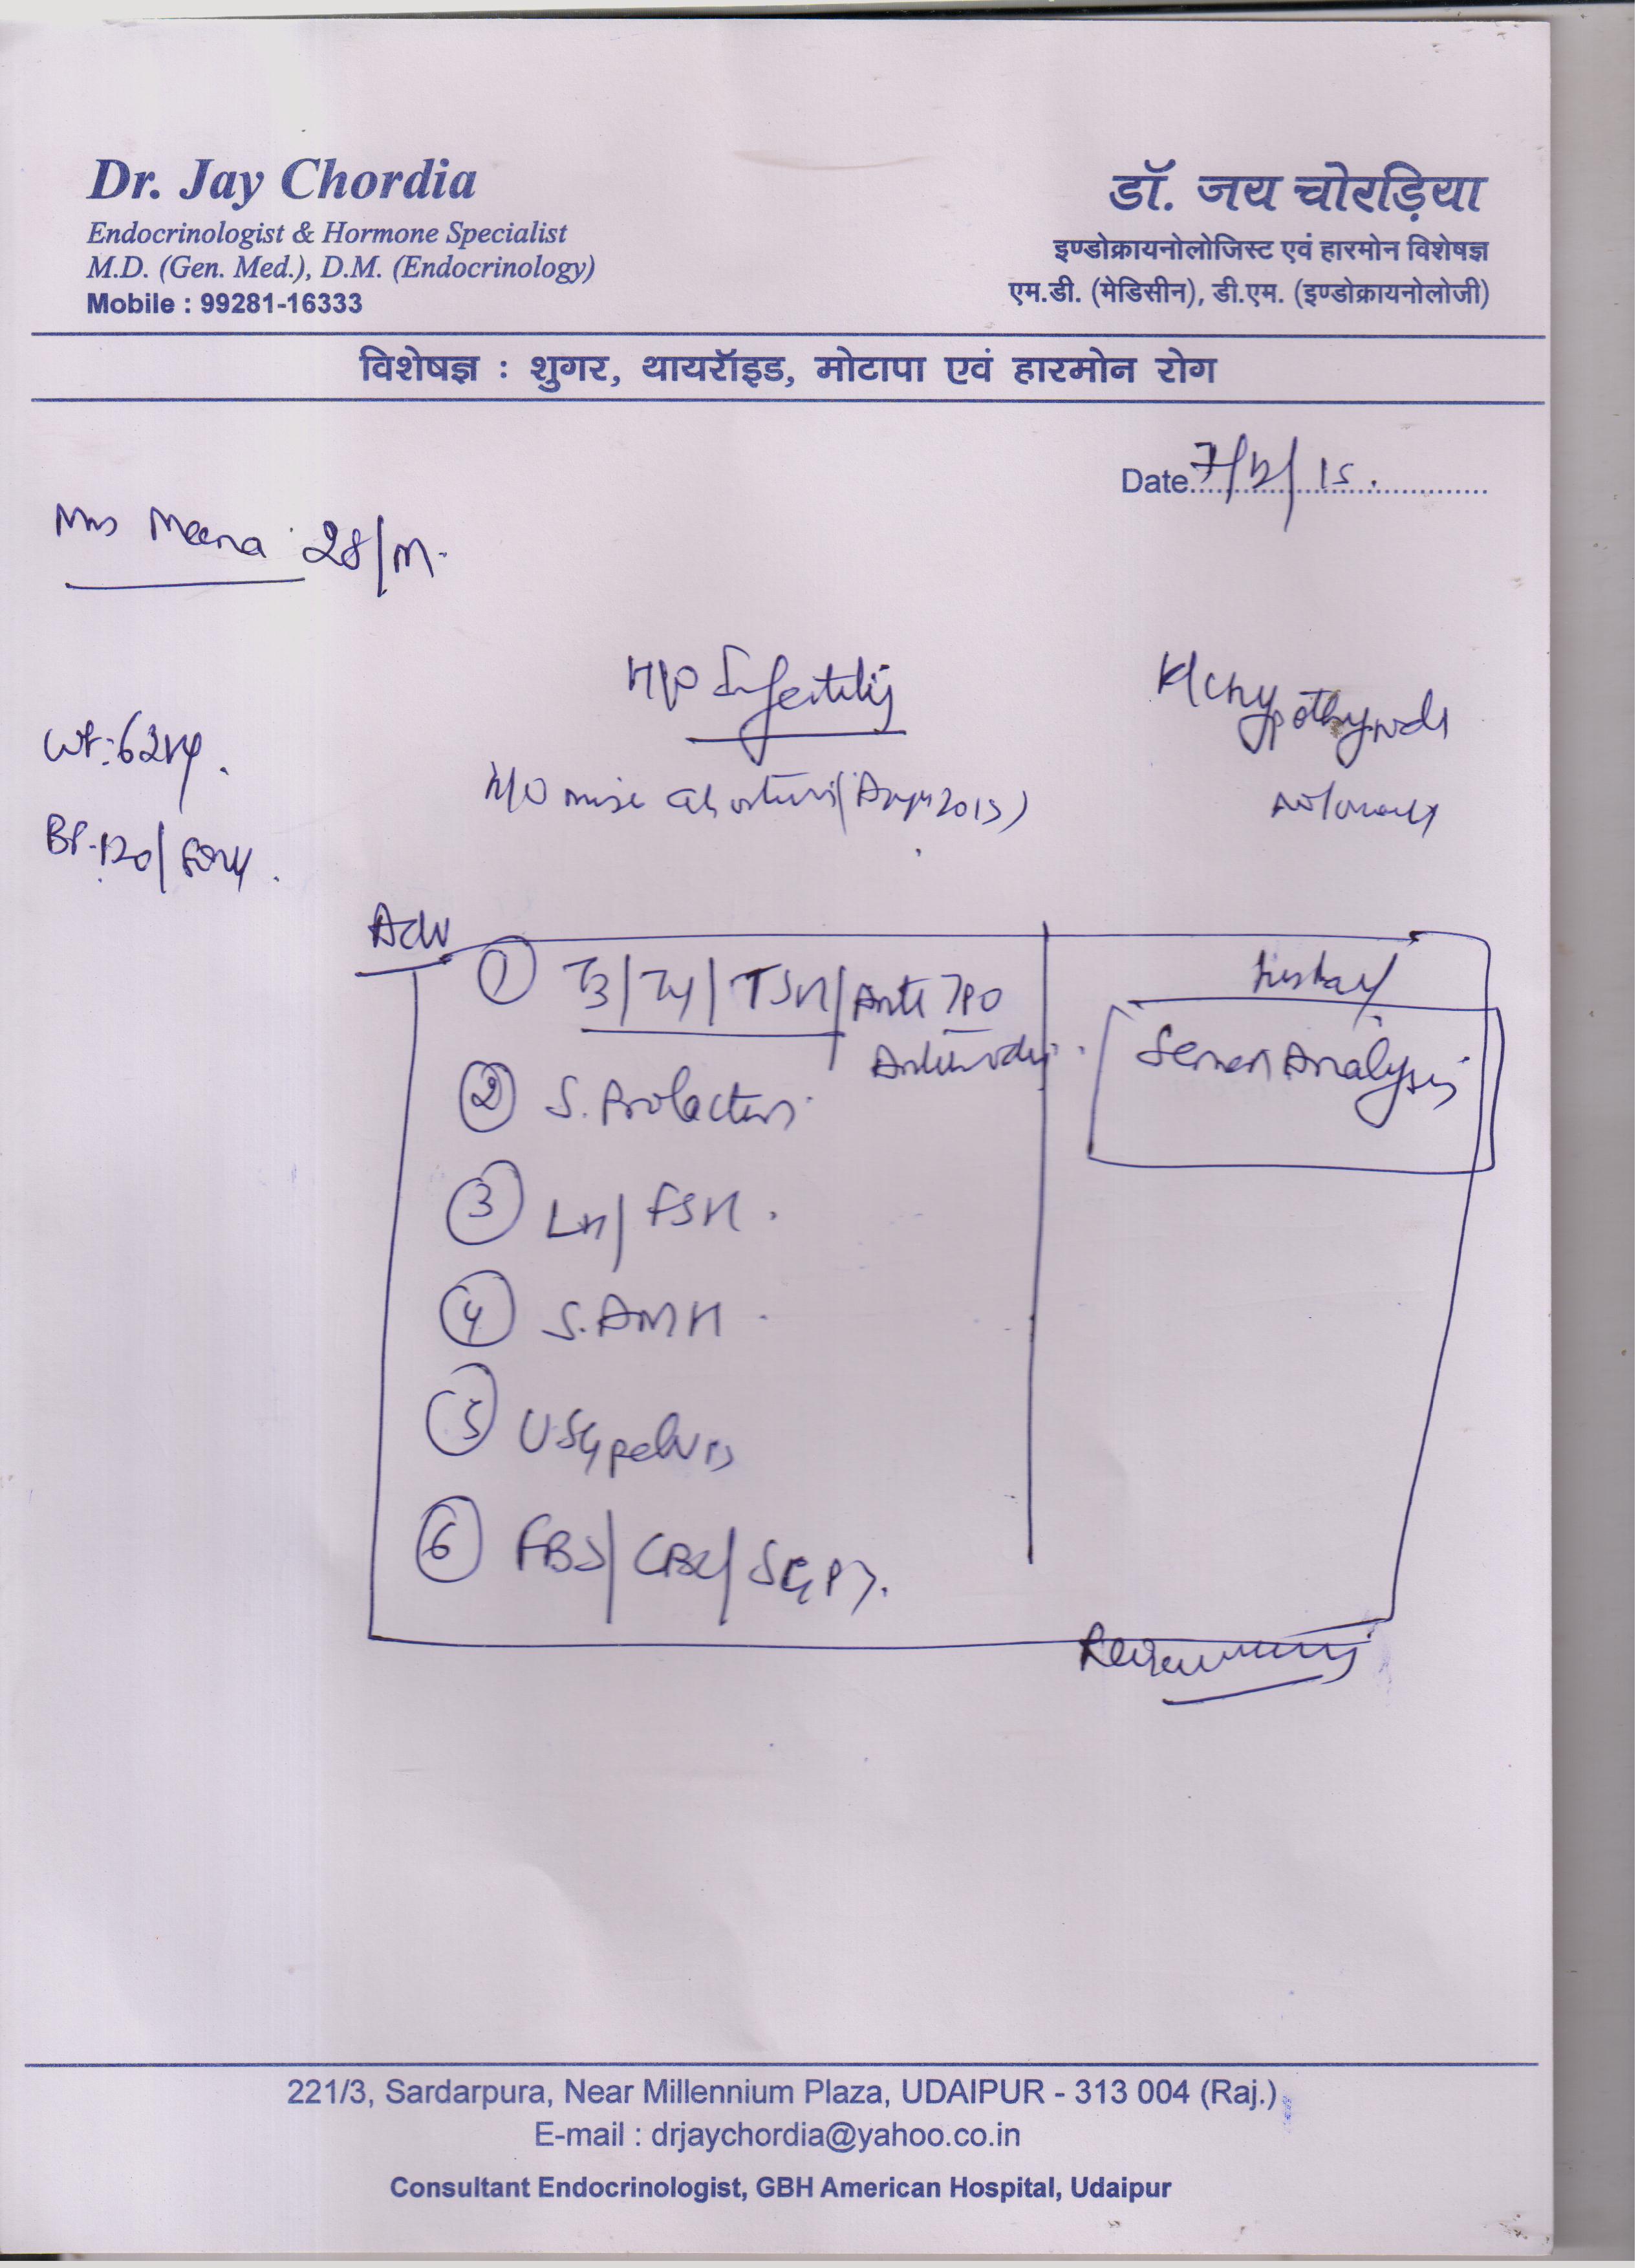 Dr. Jay Chordia
Endocrinologist & Hormone Specialist
M.D. (Gen. Med.), D.M. (Endocrinology)
Mobile : 99281-16333
डॉ. जय चोरड़िया
इण्डोक्रायनोलोजिस्ट एवं हारमोन विशेषज्ञ
एम.डी. (मेडिसीन), डी.एम. (इण्डोक्रायनोलोजी)
विशेषज्ञ : शुगर, थायरॉइड, मोटापा एवं हारमोन रोग
Date 7/12/15.
Mrs Meena 28/M.
H/O Infertility
K/C Hypothyroids
Wt: 62kg.
H/O
BP. 120/80
Adv
① T3/T4/TSH/Anti TPO
Antibody.
② S. Prolactin.
③ LH/FSH.
④ S. AMH.
⑤ USG pelvis
⑥ FBS/CBC/SGPT.
Semen Analysis.
221/3, Sardarpura, Near Millennium Plaza, UDAIPUR - 313 004 (Raj.)
E-mail : drjaychordia@yahoo.co.in
Consultant Endocrinologist, GBH American Hospital, Udaipur